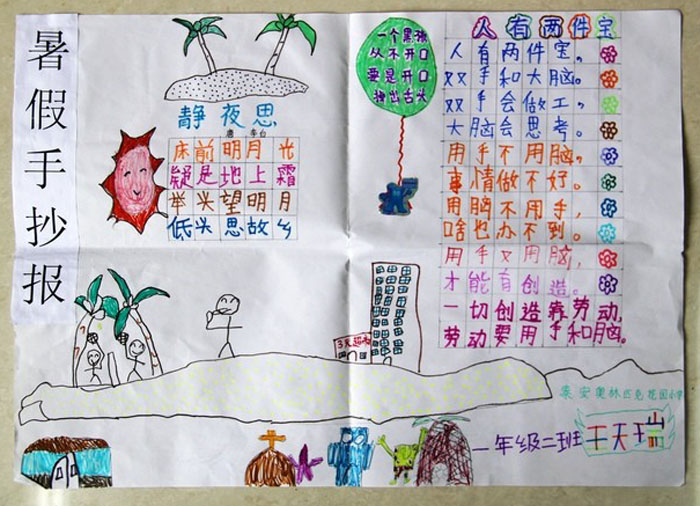 暑假手抄报
静夜思
唐 李白
床前明月光
疑是地上霜
举头望明月
低头思故乡
一个黑孩
从不开口
要是开口
掉出舌头
人有两件宝
人有两件宝，
双手和大脑。
双手会做工，
大脑会思考。
用手不用脑，
事情做不好。
用脑不用手，
啥也办不到。
用手又用脑，
才能有创造。
一切创造靠劳动，
劳动要用手和脑。
安奥林匹克花园小学
一年级二班王天瑞